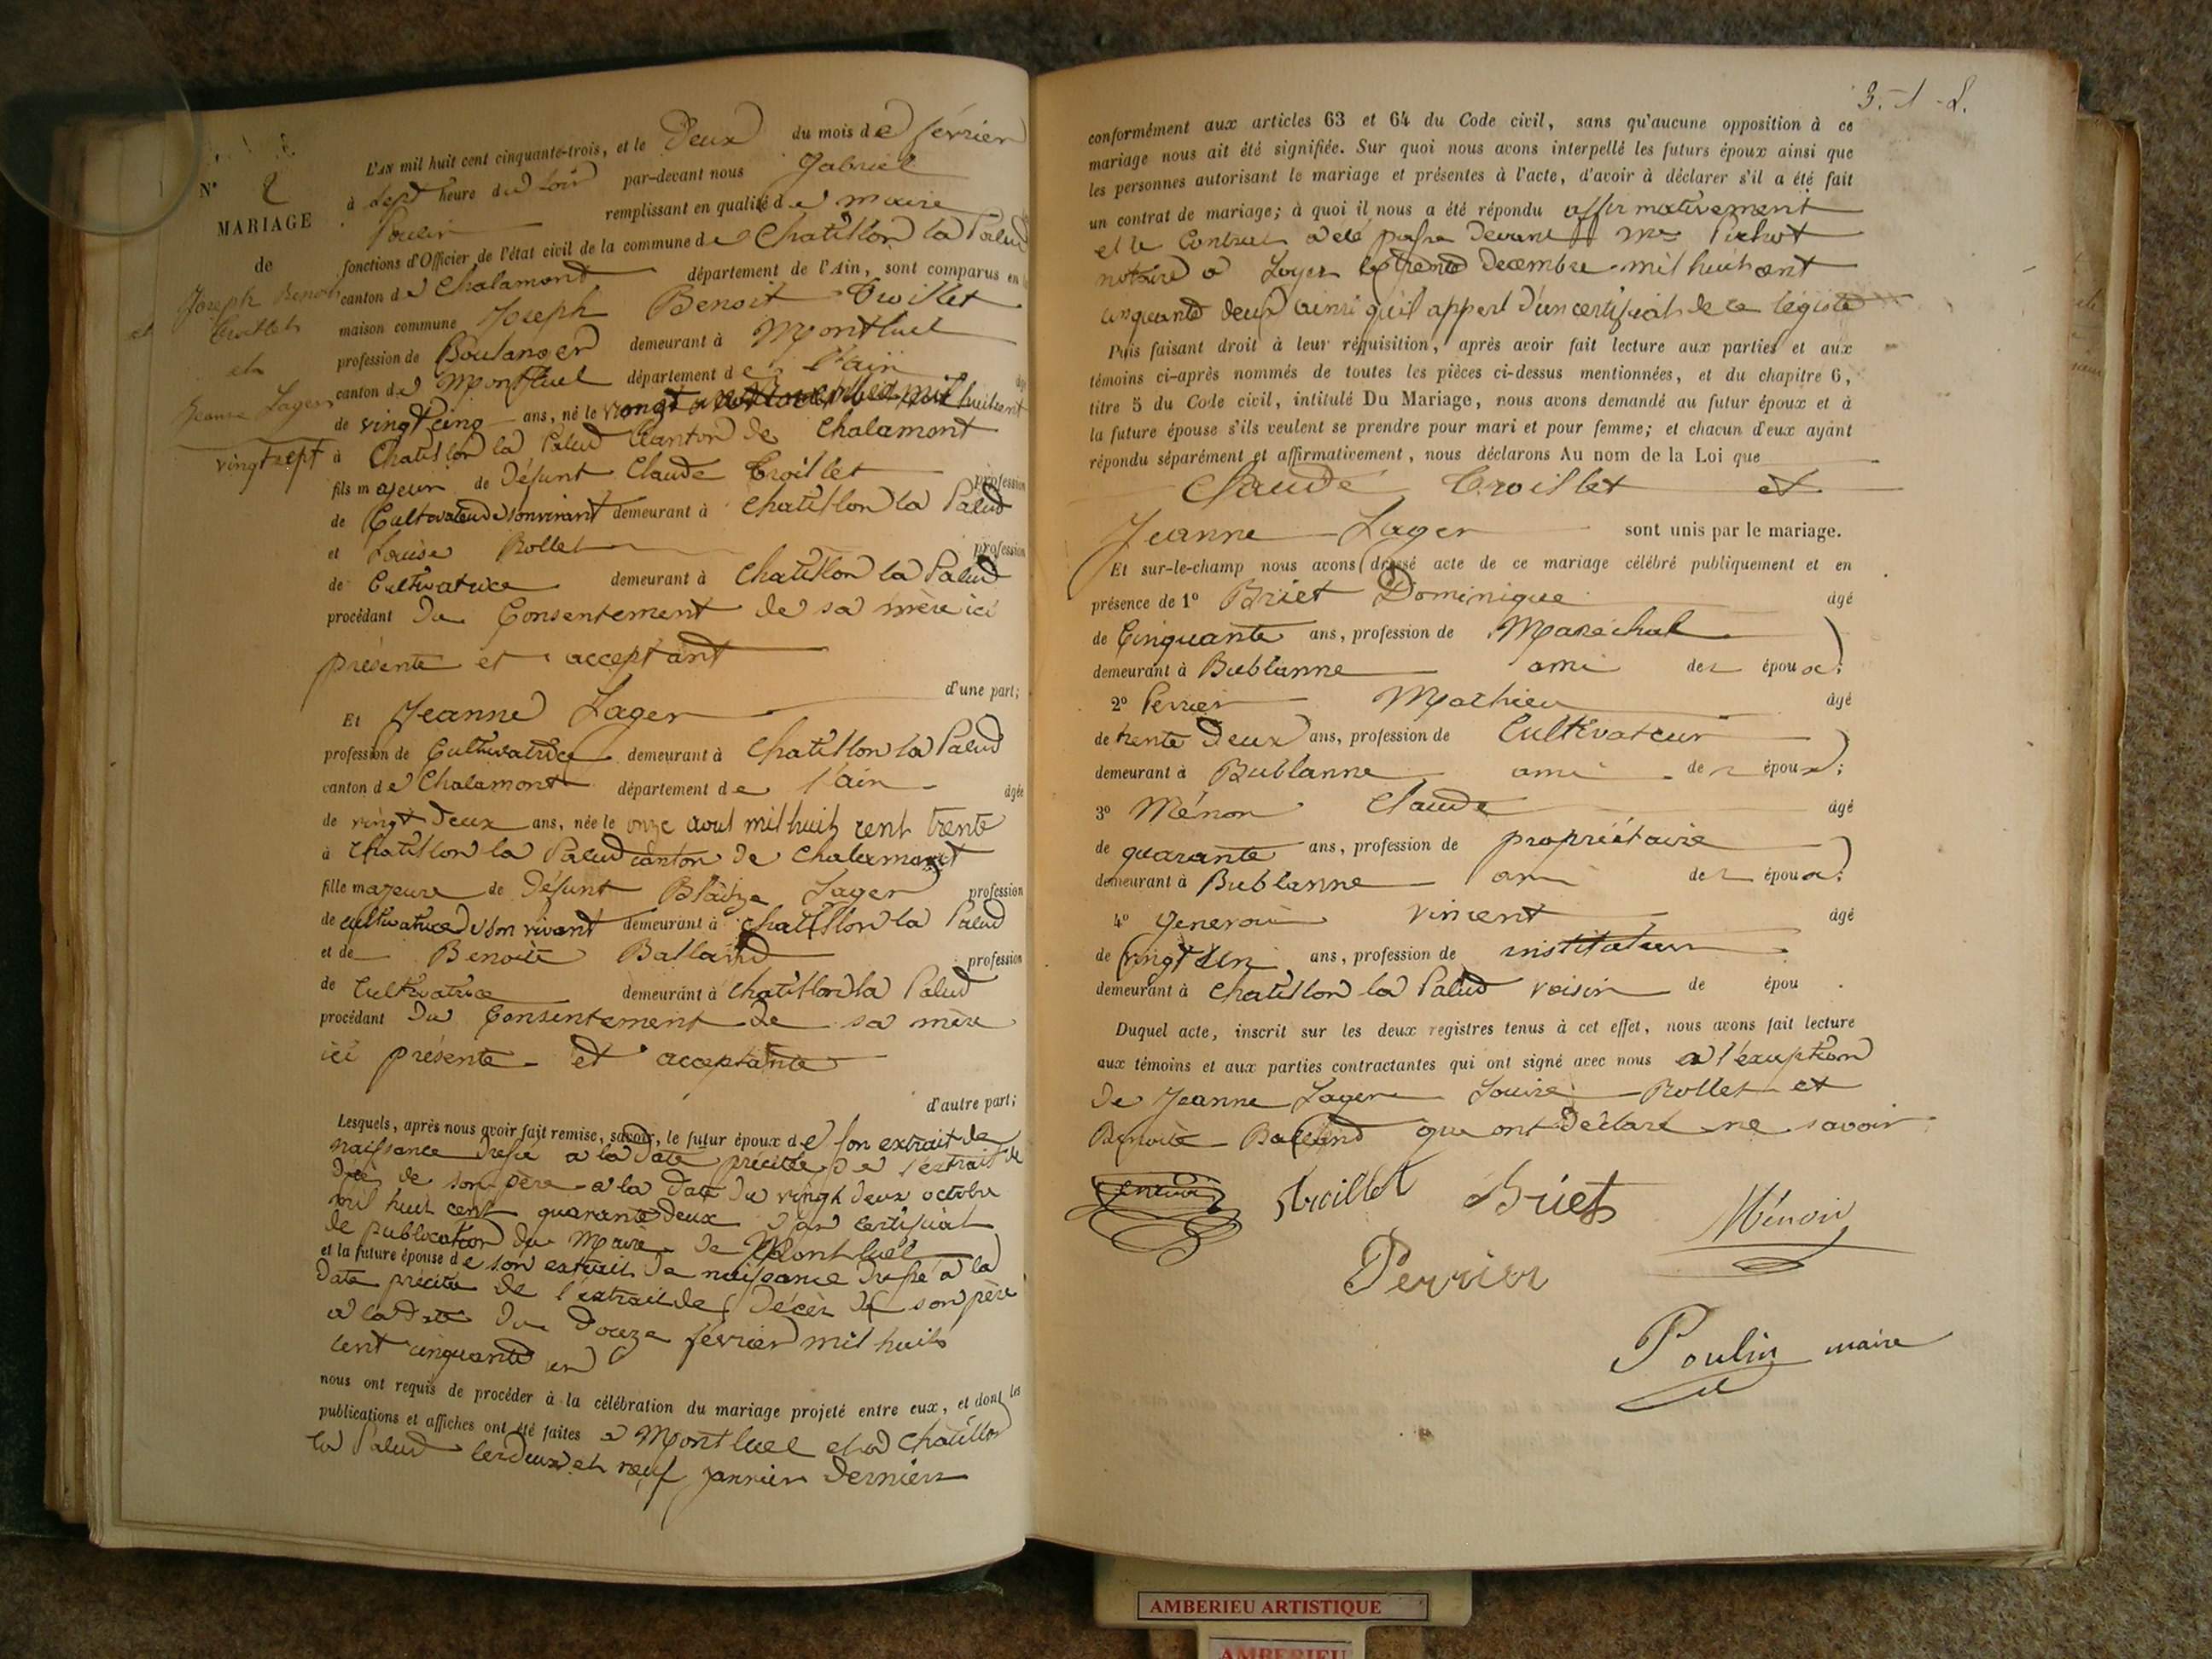 N° 2
MARIAGE
de
Joseph Benoit
Troillet
et
Jeanne Lager
vingt sept
L'AN mil huit cent cinquante-trois, et le Deux du mois de février
à Sept heure du Soir par-devant nous Gabriel
Poulin remplissant en qualité de maire
fonctions d'Officier de l'état civil de la commune de Chatillon la Palud
canton de Chalamont département de l'Ain, sont comparus en
maison commune Joseph Benoit Troillet
profession de Boulanger demeurant à Montluel
canton de Montluel département de l'ain
de vingt cinq ans, né le mil huit cent
à Chatillon la Palud Canton de Chalamont
fils majeur de Défunt Claude Troillet profession
de Cultivateur de son vivant demeurant à Chatillon la Palud
et Louise Rollet profession
de Cultivatrice demeurant à Chatillon la Palud
procédant du Consentement de sa mère ici
présente et acceptant
d'une part;
Et Jeanne Lager
profession de Cultivatrice demeurant à Chatillon la Palud
canton de Chalamont département de l'ain âgée
de vingt Deux ans, née le onze aout mil huit cent trente
à Chatillon la Palud canton de Chalamont
fille majeure de Défunt Blaize Lager profession
de cultivatrice de son vivant demeurant à Chatillon la Palud
et de Benoite Balland profession
de Cultivatrice demeurant à Chatillon la Palud
procédant du Consentement de sa mère
ici présente et acceptante
d'autre part;
Lesquels, après nous avoir fait remise, savoir, le futur époux de son extrait de
naissance dressé a la Date précitée de l'extrait de
de son père a la Date du vingt deux octobre
mil huit cent quarante Deux d'un certificat
de publication du Maire de Montluel
et la future épouse de son extrait de naissance dressé a la
Date précitée de l'extrait de Décès de son père
a la Date du Douze février mil huit
cent cinquante un
nous ont requis de procéder à la célébration du mariage projeté entre eux, et dont les
publications et affiches ont été faites a Montluel et a Chatillon
la Palud les deux et neuf janvier Derniers
3.-1-2.
conformément aux articles 63 et 64 du Code civil, sans qu'aucune opposition à ce
mariage nous ait été signifiée. Sur quoi nous avons interpellé les futurs époux ainsi que
les personnes autorisant le mariage et présentes à l'acte, d'avoir à déclarer s'il a été fait
un contrat de mariage; à quoi il nous a été répondu affirmativement
et le Contrat a été passé devant Me
notaire a Loyes le trente decembre mil huit cent
cinquante deux ainsi qu'il appert d'un certificat de ce légiste
Puis faisant droit à leur réquisition, après avoir fait lecture aux parties et aux
témoins ci-après nommés de toutes les pièces ci-dessus mentionnées, et du chapitre 6,
titre 5 du Code civil, intitulé Du Mariage, nous avons demandé au futur époux et à
la future épouse s'ils veulent se prendre pour mari et pour femme; et chacun d'eux ayant
répondu séparément et affirmativement, nous déclarons Au nom de la Loi que
Claude Troillet et
Jeanne Lager sont unis par le mariage.
Et sur-le-champ nous avons dressé acte de ce mariage célébré publiquement et en
présence de 1° Briet Dominique âgé
de Cinquante ans, profession de Maréchal
demeurant à Bublanne ami des époux;
2° Perrier Mathieu âgé
de trente Deux ans, profession de Cultivateur
demeurant à Bublanne ami des époux;
3° Ménon Claude âgé
de quarante ans, profession de propriétaire
demeurant à Bublanne ami des époux;
4° vincent âgé
de vingt un ans, profession de instituteur
demeurant à Chatillon la Palud voisin de épou .
Duquel acte, inscrit sur les deux registres tenus à cet effet, nous avons fait lecture
aux témoins et aux parties contractantes qui ont signé avec nous a l'exception
de Jeanne Lager Louise Rollet et
Benoite Balland qui ont Déclaré ne savoir
Troillet Briet Ménon
Perrier
Poulin maire
AMBERIEU ARTISTIQUE
AMBERIEU